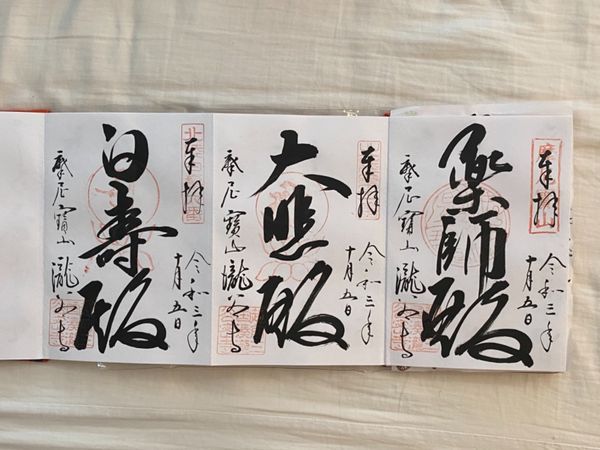 奉拝
令和三年
十月五日
薬師殿
摩尼寶山 瀧谷寺
奉拝
令和三年
十月五日
大悲殿
摩尼寶山 瀧谷寺
奉拝
令和三年
十月五日
白壽殿
摩尼寶山 瀧谷寺